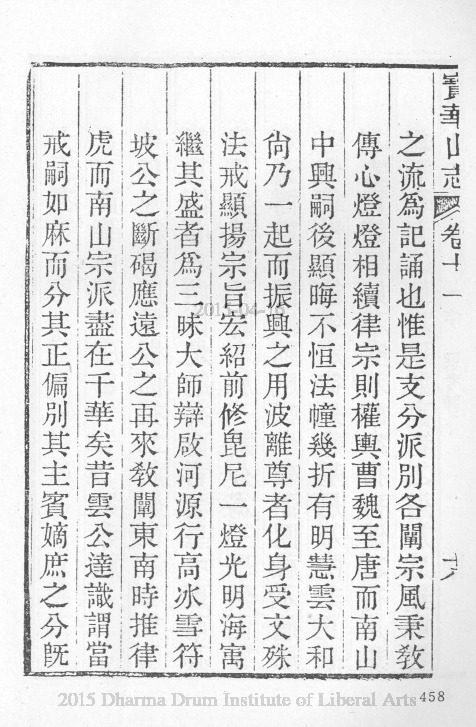 寶華山志 卷十一 十六
之流爲記誦也惟是支分派別各闡宗風秉敎
傳心燈燈相續律宗則權輿曹魏至唐而南山
中興嗣後顯晦不恒法幢幾折有明慧雲大和
尙乃一起而振興之用波離尊者化身受文殊
法戒顯揚宗旨宏紹前修毘尼一燈光明海寓
繼其盛者爲三昧大師辯啟河源行高冰雪符
坡公之斷碣應遠公之再來敎闡東南時推律
虎而南山宗派盡在千華矣昔雲公達識謂當
戒嗣如麻而分其正偏別其主賓嫡庶之分旣
2015 Dharma Drum Institute of Liberal Arts
458